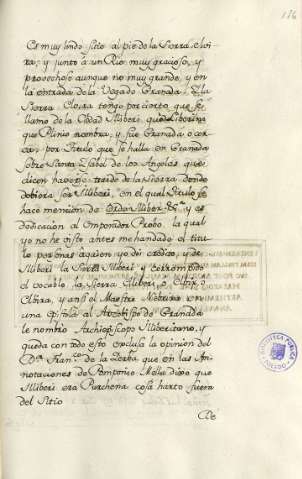 176
Es muy lindo sitio al pie de la Sierra elvi
ra, y junto à un Rio muy gracioso, y
provechoso aunque no muy grande, y en
la entrada de la Vega de Granada. I la
Sierra Elvira tengo por cierto que se
llamo de la Ciudad Illiberi, que Liberina
que Plinio nombra, y fue Granada ò cer
ca; por titulo que se halla en Granada
sobre Santa Isabel de los Angeles que
dicen haverse traido de la Sierra, donde
debiera ser Illiberi, en el qual titulo se
hace mencion de Ordo Illiber. y es
dedicacion al Emperador Probo. la qual
yo no he visto antes me han dado el titu
lo personas a quien yo doi credito, y de
Illiberi la Sierra Illiberi y corrompido
el vocablo, la Sierra Eliberi, o
Elvira, y ansi el Maestro Nebrixa en
una epistola al Arzobispo de Granada
le nombra Archiepiscopo Illiberitano, y
queda con todo esto exclusa la opinion del
Dr. Franco. de la que en las An
notaciones de Pomponio Mella dixo que
Illiberi era Purchena cosa harto fuera
del Sitio
BIBLIOTECA PUBLICA
TOLEDO